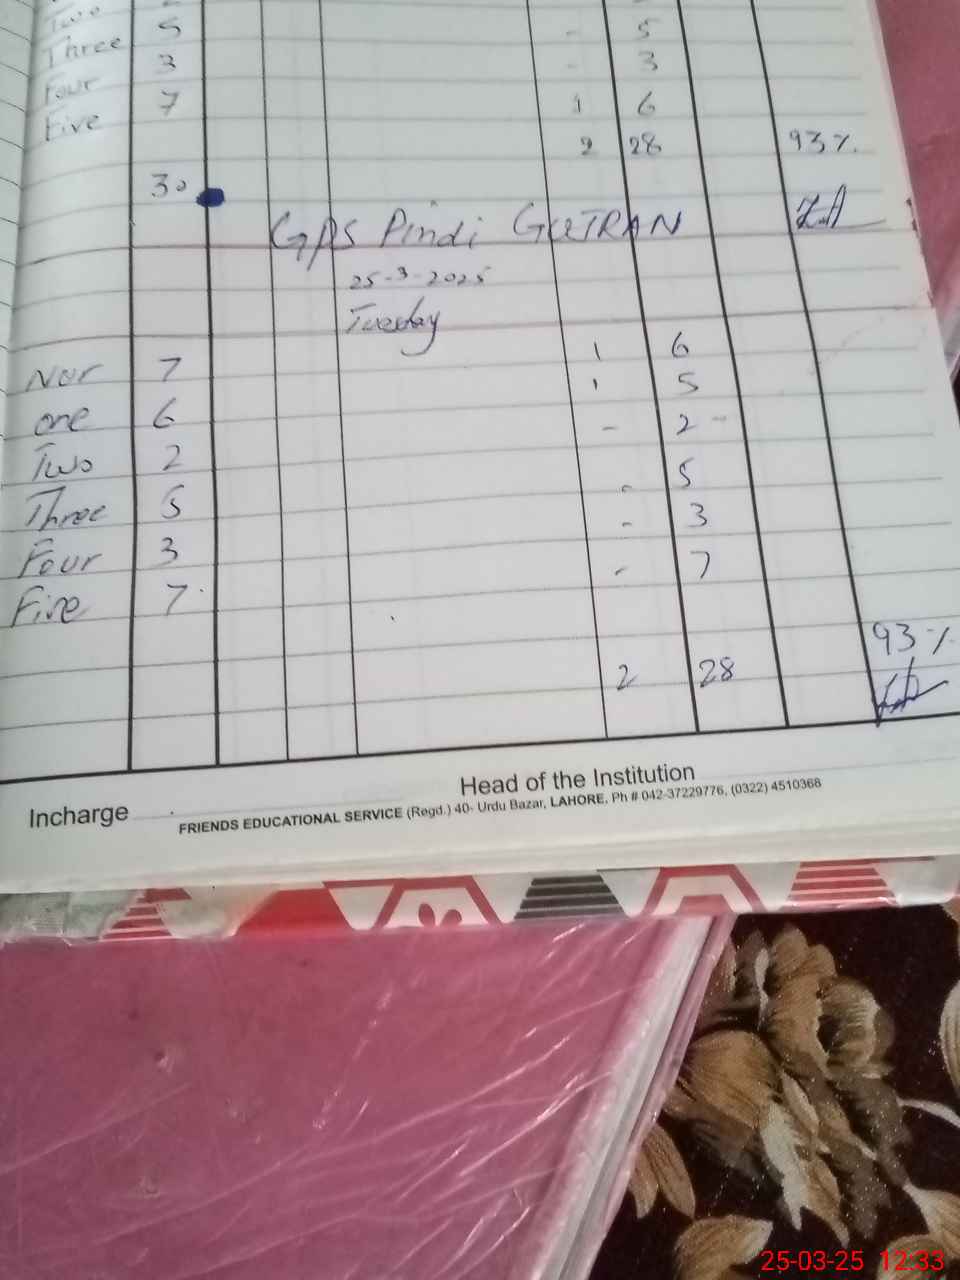 Two
Three 5 - 5
Four 3 - 3
Five 7 1 6
2 28 93%.
30
GPS Pindi GUJRAN
25-3-2025
Tuesday
Nur 7 1 6
one 6 1 5
Two 2 - 2 -
Three 5 - 5
Four 3 - 3
Five 7 - 7
93%
2 28
Incharge Head of the Institution
FRIENDS EDUCATIONAL SERVICE (Regd.) 40- Urdu Bazar, LAHORE. Ph # 042-37229776, (0322) 4510368
25-03-25 12:33